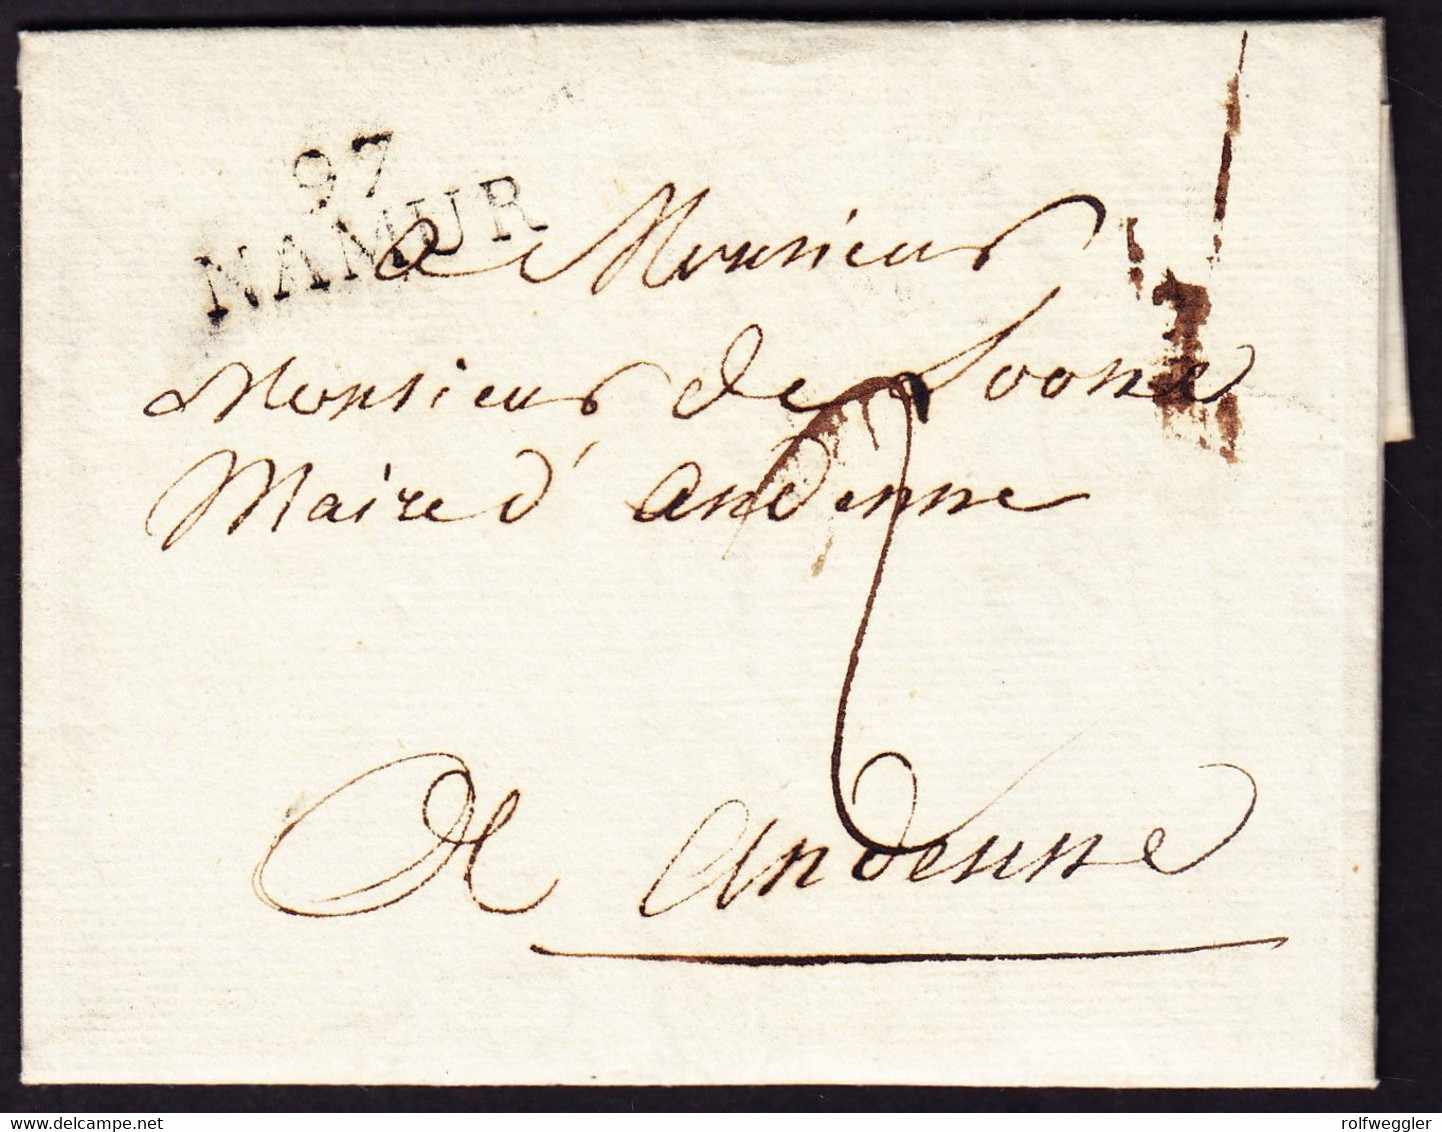 97
NAMUR
a Monsieur
Monsieur de Loosne
Maire d'andenne
2
A andenne
delcampe.net
rolfweggler